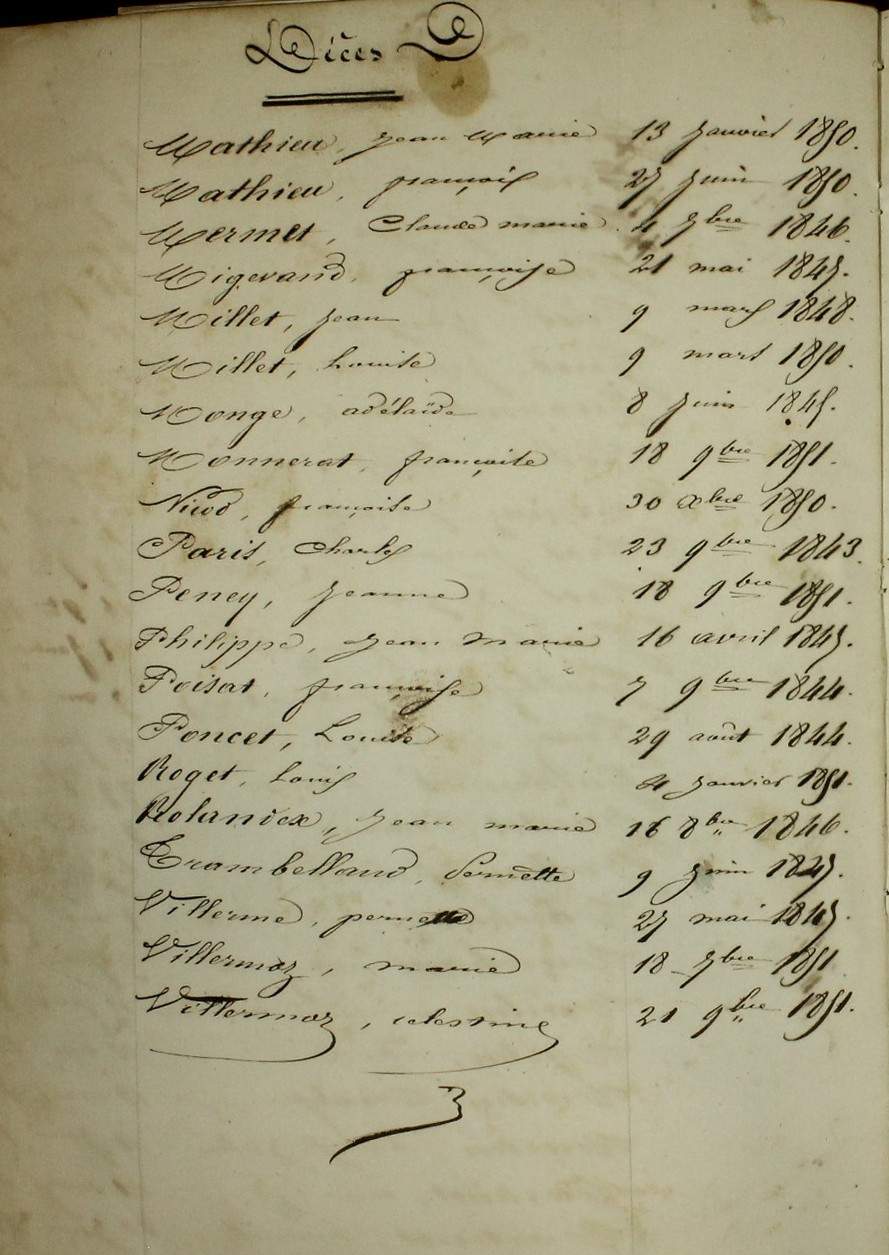 Décès
Mathieu, Jean Marie 13 Janvier 1850.
Mathieu, françois 27 Juin 1850.
Mermet, Claude marie 4 7bre 1846.
Migevand, françoise 21 mai 1845.
Millet, Jean 9 mars 1848.
Millet, Louise 9 mars 1850.
Monge, adélaïde 8 Juin 1845.
Monnerat, françoise 18 9bre 1851.
Nicod, françoise 30 xbre 1850.
Paris, Charles 23 9bre 1843.
Peney, Jeanne 18 9bre 1851.
Philippe, Jean marie 16 avril 1845.
Poisat, françoise 7 9bre 1844.
Poncet, Louise 29 août 1844.
Roget, Louis 4 Janvier 1851.
Rolandex, Jean marie 16 8bre 1846.
Trambelland, Pernette 9 Juin 1845.
Villerme, pernette 27 mai 1845.
Villermoz, marie 18 7bre 1851
Villermoz, celestine 21 9bre 1851.